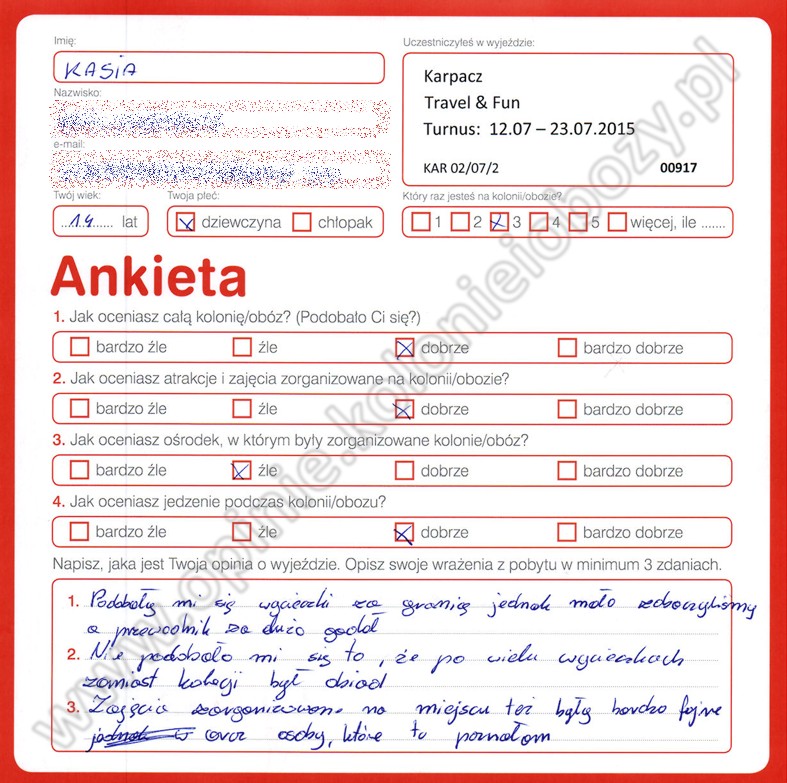 Imię:
KASIA
Nazwisko:
e-mail:
Twój wiek:
14 lat
Twoja płeć:
dziewczyna chłopak
Uczestniczyłeś w wyjeździe:
Karpacz
Travel & Fun
Turnus: 12.07 – 23.07.2015
KAR 02/07/2 00917
Który raz jesteś na kolonii/obozie?
1 2 3 4 5 więcej, ile .......
Ankieta
1. Jak oceniasz całą kolonię/obóz? (Podobało Ci się?)
bardzo źle źle dobrze bardzo dobrze
2. Jak oceniasz atrakcje i zajęcia zorganizowane na kolonii/obozie?
bardzo źle źle dobrze bardzo dobrze
3. Jak oceniasz ośrodek, w którym były zorganizowane kolonie/obóz?
bardzo źle źle dobrze bardzo dobrze
4. Jak oceniasz jedzenie podczas kolonii/obozu?
bardzo źle źle dobrze bardzo dobrze
Napisz, jaka jest Twoja opinia o wyjeździe. Opisz swoje wrażenia z pobytu w minimum 3 zdaniach.
1. Podobały mi się wycieczki za granicę jednak mało zobaczyliśmy
a przewodnik za dużo gadał
2. Nie podobało mi się to, że po wielu wycieczkach
zamiast kolacji był obiad
3. Zajęcia zorganizowane na miejscu też były bardzo fajne
oraz osoby, które tu poznałam
www.opinie.kolonieiobozy.pl